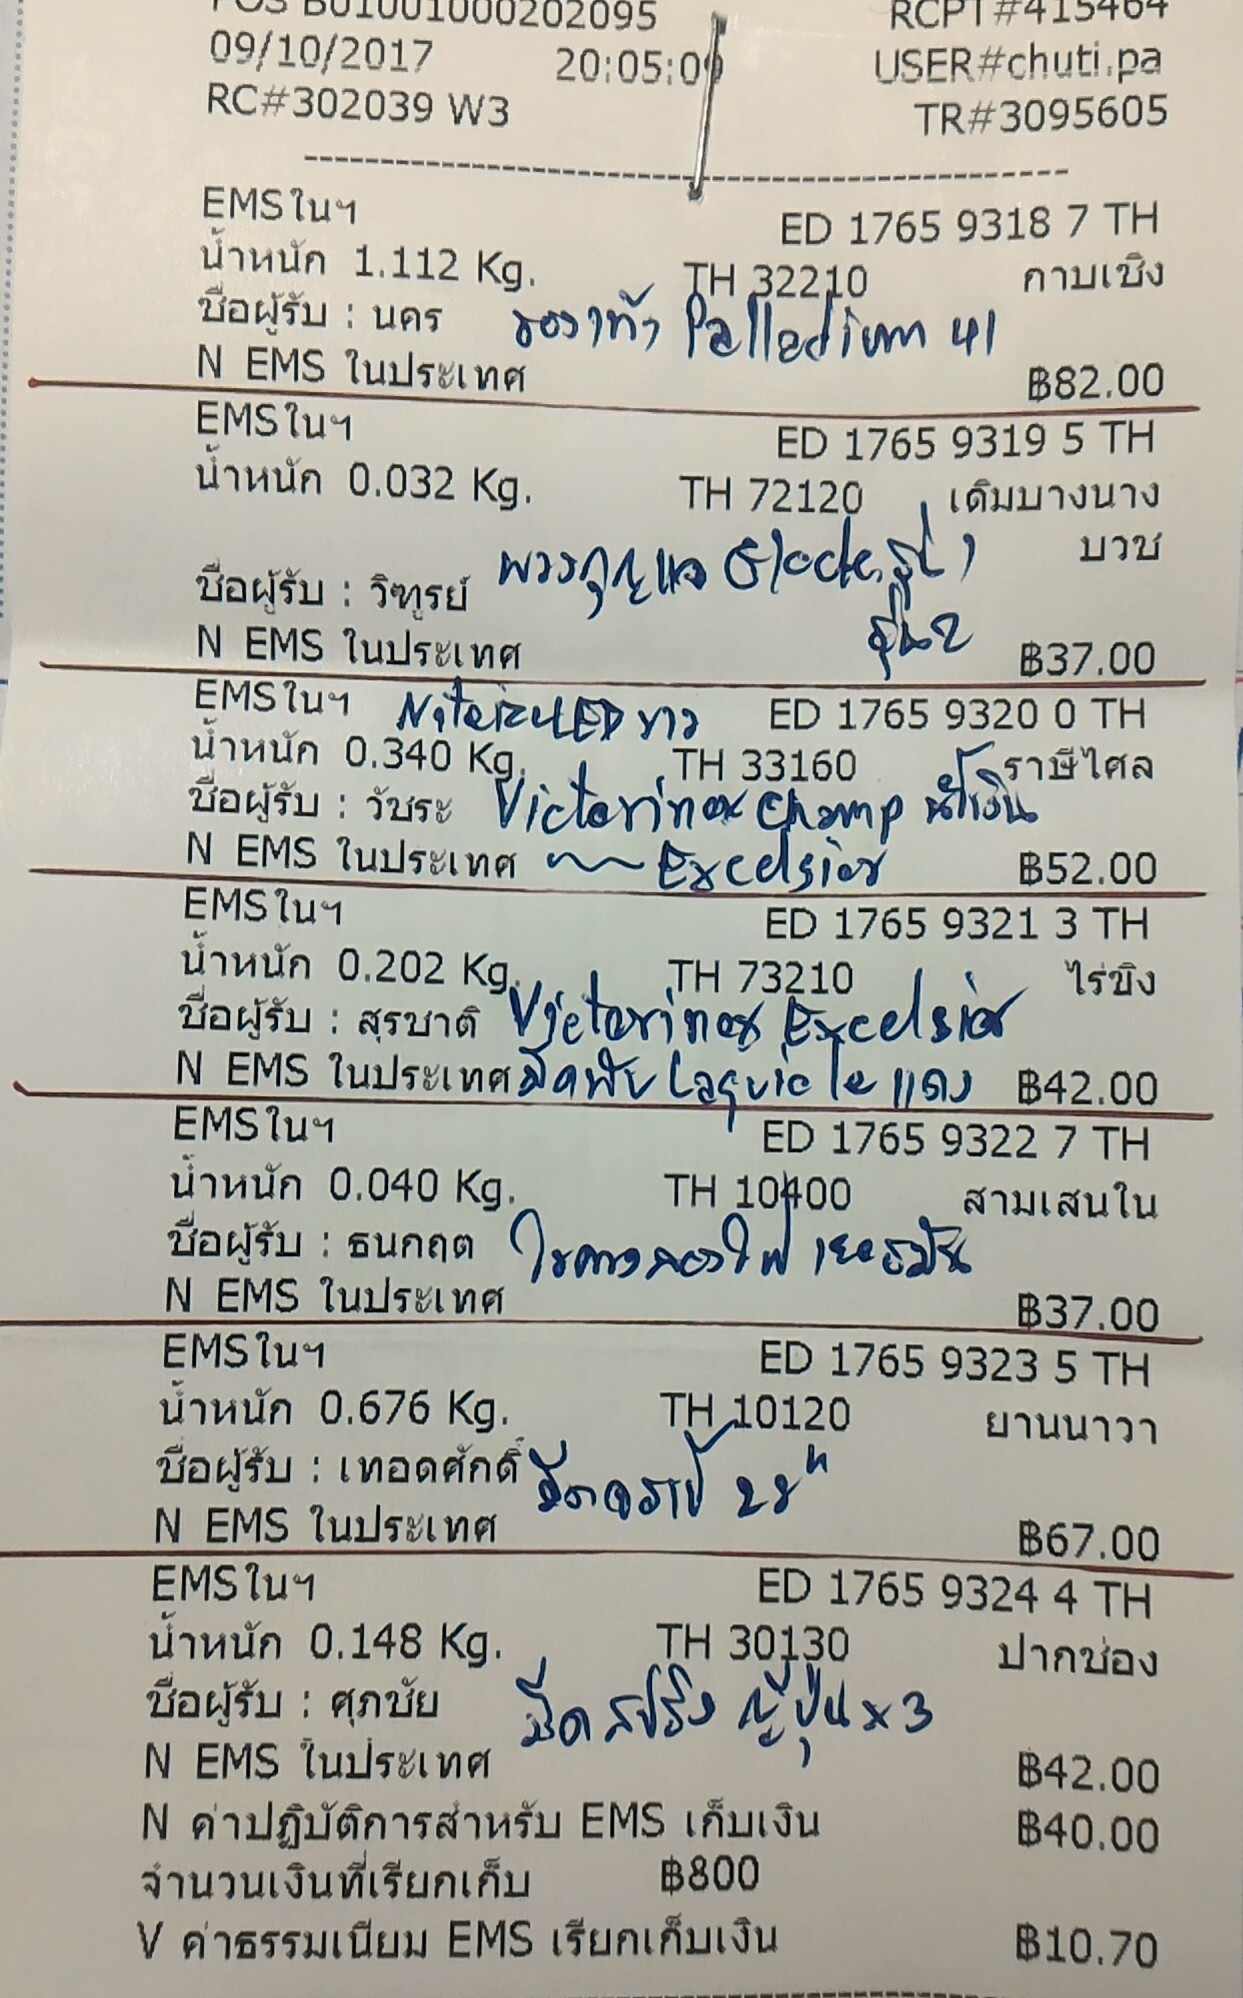 POS B01001000202095 RCPT#415464
09/10/2017 20:05:09 USER#chuti.pa
RC#302039 W3 TR#3095605
EMSในฯ ED 1765 9318 7 TH
น้ำหนัก 1.112 Kg. TH 32210 กาบเชิง
ชื่อผู้รับ : นคร รองเท้า Palladium 41
N EMS ในประเทศ ฿82.00
EMSในฯ ED 1765 9319 5 TH
น้ำหนัก 0.032 Kg. TH 72120 เดิมบางนาง
บวช
ชื่อผู้รับ : วิฑูรย์ พวงกุญแจ Glock
รุ่น2
N EMS ในประเทศ ฿37.00
EMSในฯ LED ขาว ED 1765 9320 0 TH
น้ำหนัก 0.340 Kg. TH 33160 ราษีไศล
ชื่อผู้รับ : วัชระ Victorinox champ น้ำเงิน
N EMS ในประเทศ Excelsior ฿52.00
EMSในฯ ED 1765 9321 3 TH
น้ำหนัก 0.202 Kg. TH 73210 ไร่ขิง
ชื่อผู้รับ : สุรชาติ Victorinox Excelsior
N EMS ในประเทศ มีดพับ Laguiole แดง ฿42.00
EMSในฯ ED 1765 9322 7 TH
น้ำหนัก 0.040 Kg. TH 10400 สามเสนใน
ชื่อผู้รับ : ธนกฤต ไขควงลองไฟ เยอรมัน
N EMS ในประเทศ ฿37.00
EMSในฯ ED 1765 9323 5 TH
น้ำหนัก 0.676 Kg. TH 10120 ยานนาวา
ชื่อผู้รับ : เทอดศักดิ์ มีด 22"
N EMS ในประเทศ ฿67.00
EMSในฯ ED 1765 9324 4 TH
น้ำหนัก 0.148 Kg. TH 30130 ปากช่อง
ชื่อผู้รับ : ศุภชัย มีดสปริง ญี่ปุ่น x 3
N EMS ในประเทศ ฿42.00
N ค่าปฏิบัติการสำหรับ EMS เก็บเงิน ฿40.00
จำนวนเงินที่เรียกเก็บ ฿800
V ค่าธรรมเนียม EMS เรียกเก็บเงิน ฿10.70